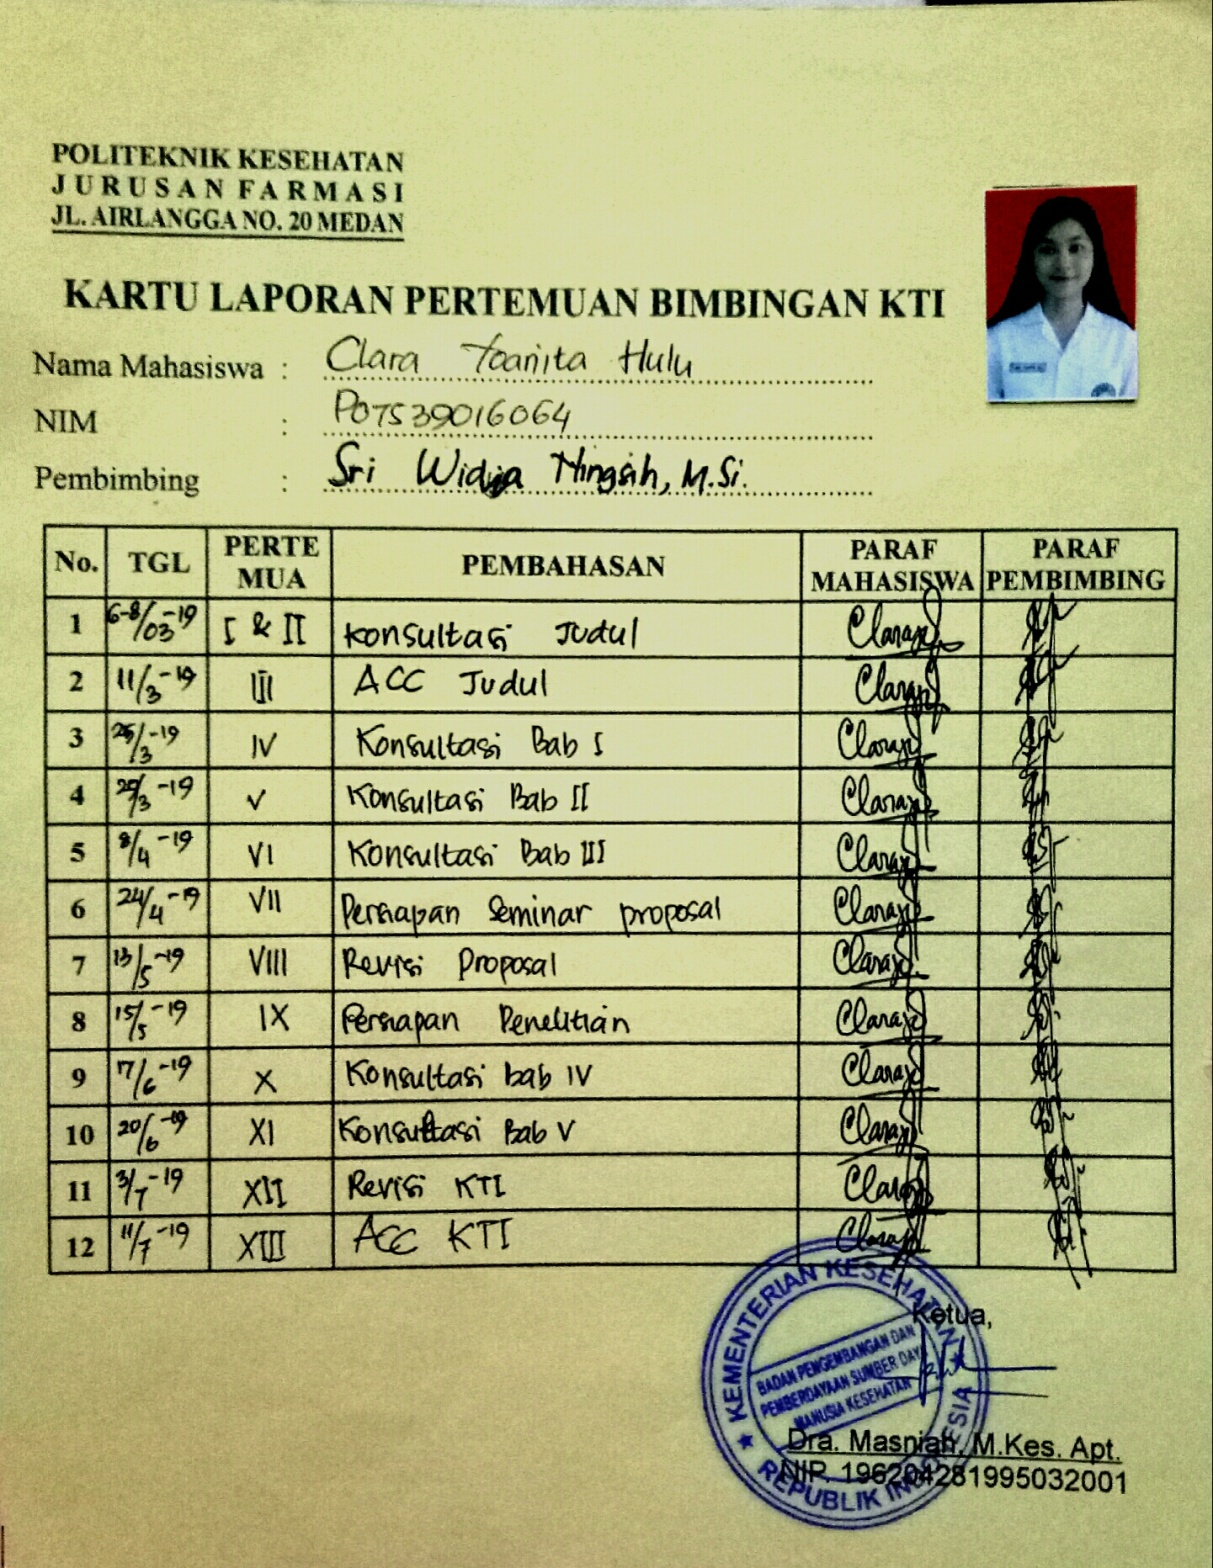 POLITEKNIK KESEHATAN
JURUSAN FARMASI
JL. AIRLANGGA NO. 20 MEDAN
KARTU LAPORAN PERTEMUAN BIMBINGAN KTI
Nama Mahasiswa : Clara Yoanita Hulu
NIM : P07539016064
Pembimbing : Sri Widia Ningsih, M.Si.
No. TGL PERTE MUA PEMBAHASAN PARAF MAHASISWA PARAF PEMBIMBING
1 6-8/03-19 I & II Konsultasi Judul
2 11/3-19 III ACC Judul
3 25/3-19 IV Konsultasi Bab I
4 29/3-19 V Konsultasi Bab II
5 8/4-19 VI Konsultasi Bab III
6 24/4-19 VII Persiapan Seminar proposal
7 13/5-19 VIII Revisi Proposal
8 15/5-19 IX Persiapan Penelitian
9 17/6-19 X Konsultasi bab IV
10 20/6-19 XI Konsultasi Bab V
11 3/7-19 XII Revisi KTI
12 11/7-19 XIII ACC KTI
KEMENTERIAN KESEHATAN
Ketua,
BADAN PENGEMBANGAN DAN
PEMBERDAYAAN SUMBER DAYA
MANUSIA KESEHATAN
REPUBLIK INDONESIA
Dra. Masniah, M.Kes. Apt.
NIP. 196204281995032001